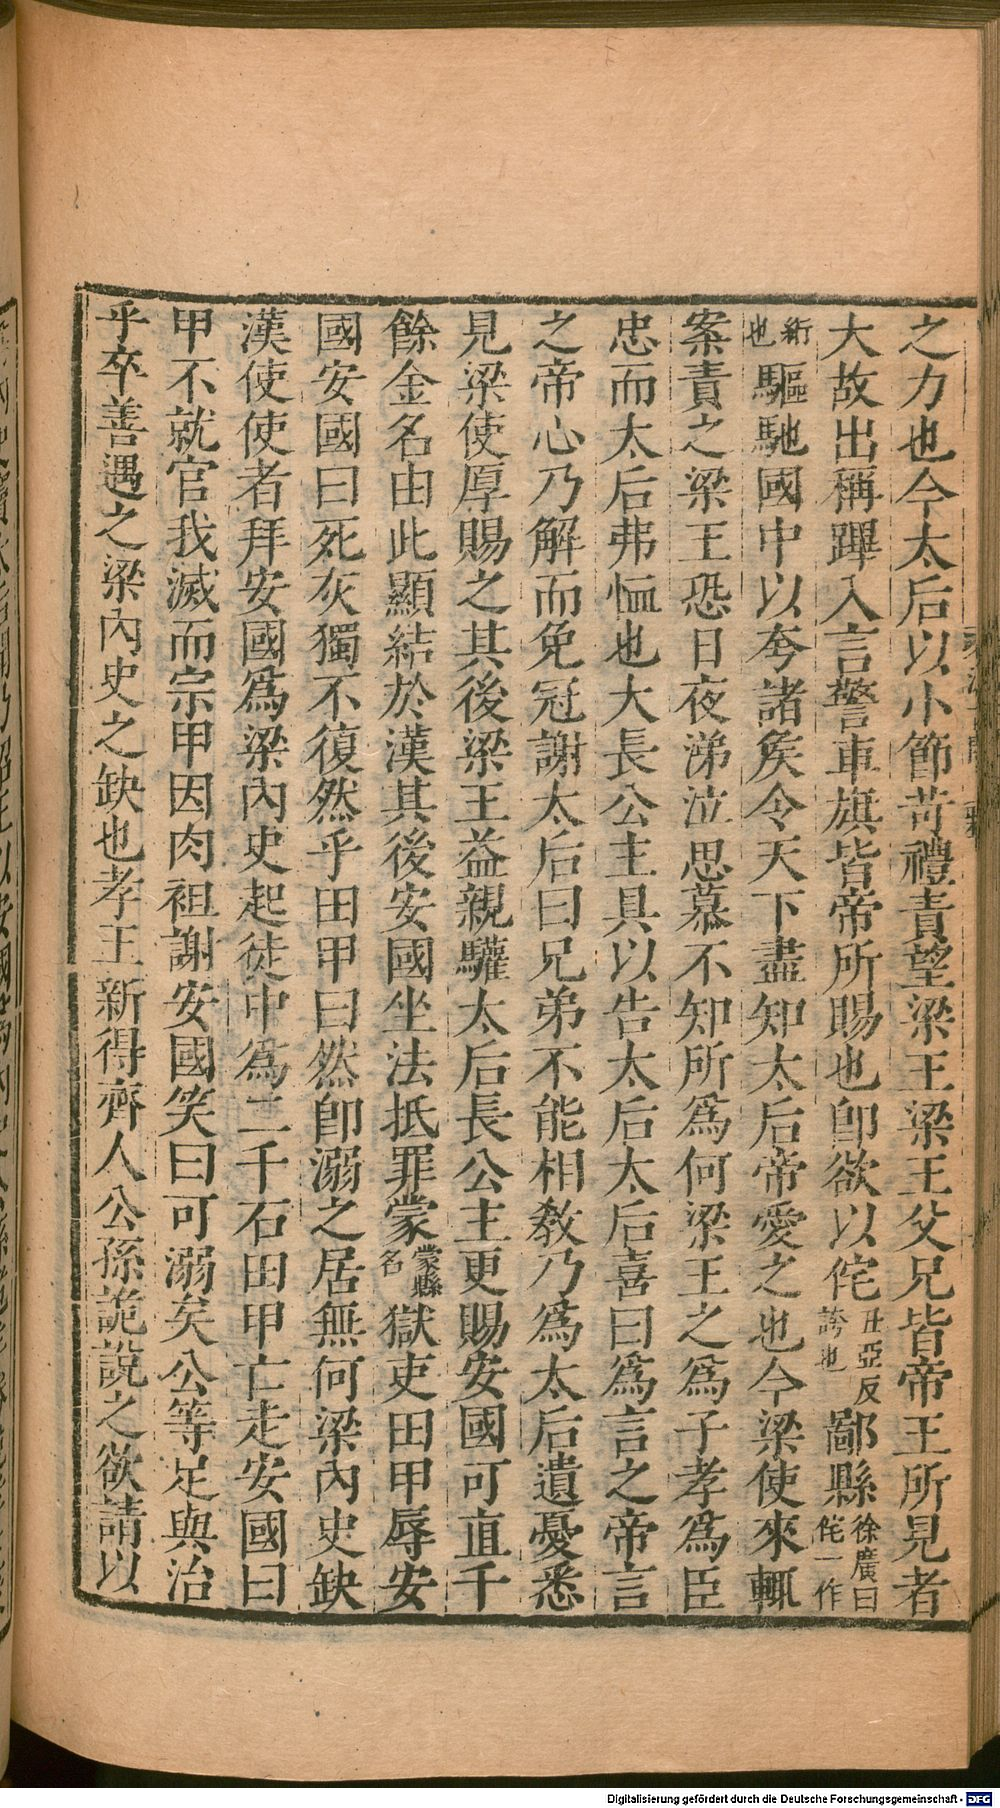 之力也今太后以小節苛禮責望梁王梁王父兄皆帝王所見者
大故出稱蹕入言警車旗皆帝所賜也卽欲以侘丑亞反誇也鄙縣徐廣曰侘一作
衒也驅馳國中以夸諸矦令天下盡知太后帝愛之也今梁使來輒
案責之梁王恐日夜涕泣思慕不知所爲何梁王之爲子孝爲臣
忠而太后弗恤也大長公主具以告太后太后喜曰爲言之帝言
之帝心乃解而免冠謝太后曰兄弟不能相敎乃爲太后遺憂悉
見梁使厚賜之其後梁王益親驩太后長公主更賜安國可直千
餘金名由此顯結於漢其後安國坐法抵罪蒙蒙縣名獄吏田甲辱安
國安國曰死灰獨不復然乎田甲曰然卽溺之居無何梁內史缺
漢使使者拜安國爲梁內史起徒中爲二千石田甲亡走安國曰
甲不就官我滅而宗甲因肉袒謝安國笑曰可溺矣公等足與治
乎卒善遇之梁內史之缺也孝王新得齊人公孫詭說之欲請以
Digitalisierung gefördert durch die Deutsche Forschungsgemeinschaft - DFG